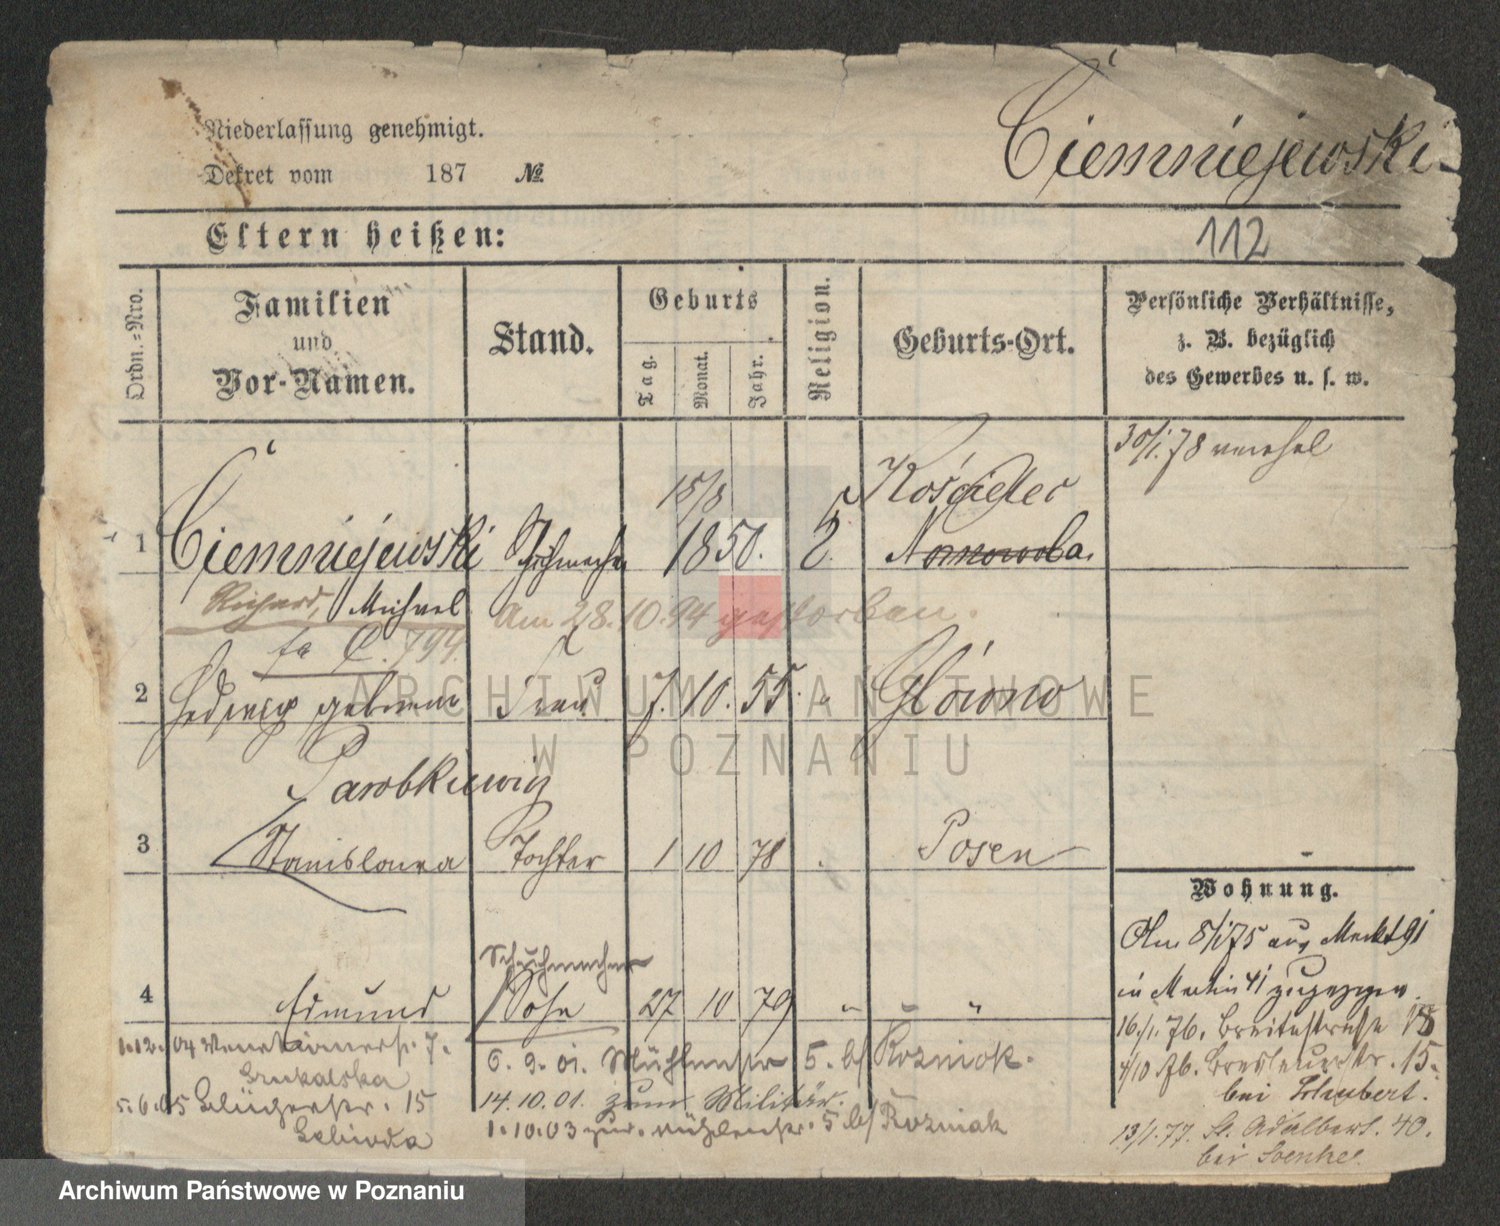 Niederlassung genehmigt.
Dekret vom 187 №
Ciemniejewski
112
Eltern heißen:
Ordn.=Nro.
Familien
und
Vor-Namen.
Stand.
Geburts
Tag.
Monat.
Jahr.
Religion.
Geburts-Ort.
Persönliche Verhältnisse,
z. B. bezüglich
des Gewerbes u. s. w.
30/1.78
15/8
1 Ciemniejewski 1850.
Richard, Michael
Am 28.10.94 gestorben.
2 Hedwig geborne Frau 7. 10. 55. Glówno
3 Stanislawa Tochter 1 10 78 Posen
4 Edmund Schuhmacher Sohn 27 10 79 " " "
Wohnung.
Am 8/1 75 aus Markt 91
in Martin 41 zugezogen.
16/1.76. Breitestraße 18
4/10 76. Breslauerstr. 15.
bei
13/1.77. St. Adalbert. 40.
bei
1.12.04 Venetianerstr. 7.
5.6.05 Blücherstr. 15
6.9.01. Mühlenstr 5. b/ Rozniak.
14.10.01. zum Militär.
1.10.03 zur. Mühlenstr. 5 b/ Rozniak
ARCHIWUM PAŃSTWOWE
W POZNANIU
Archiwum Państwowe w Poznaniu